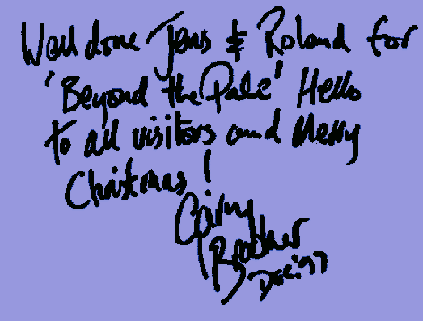 Well done Jens & Roland for
'Beyond the Pale' Hello
to all visitors and Merry
Christmas!
Brother
Dec '97